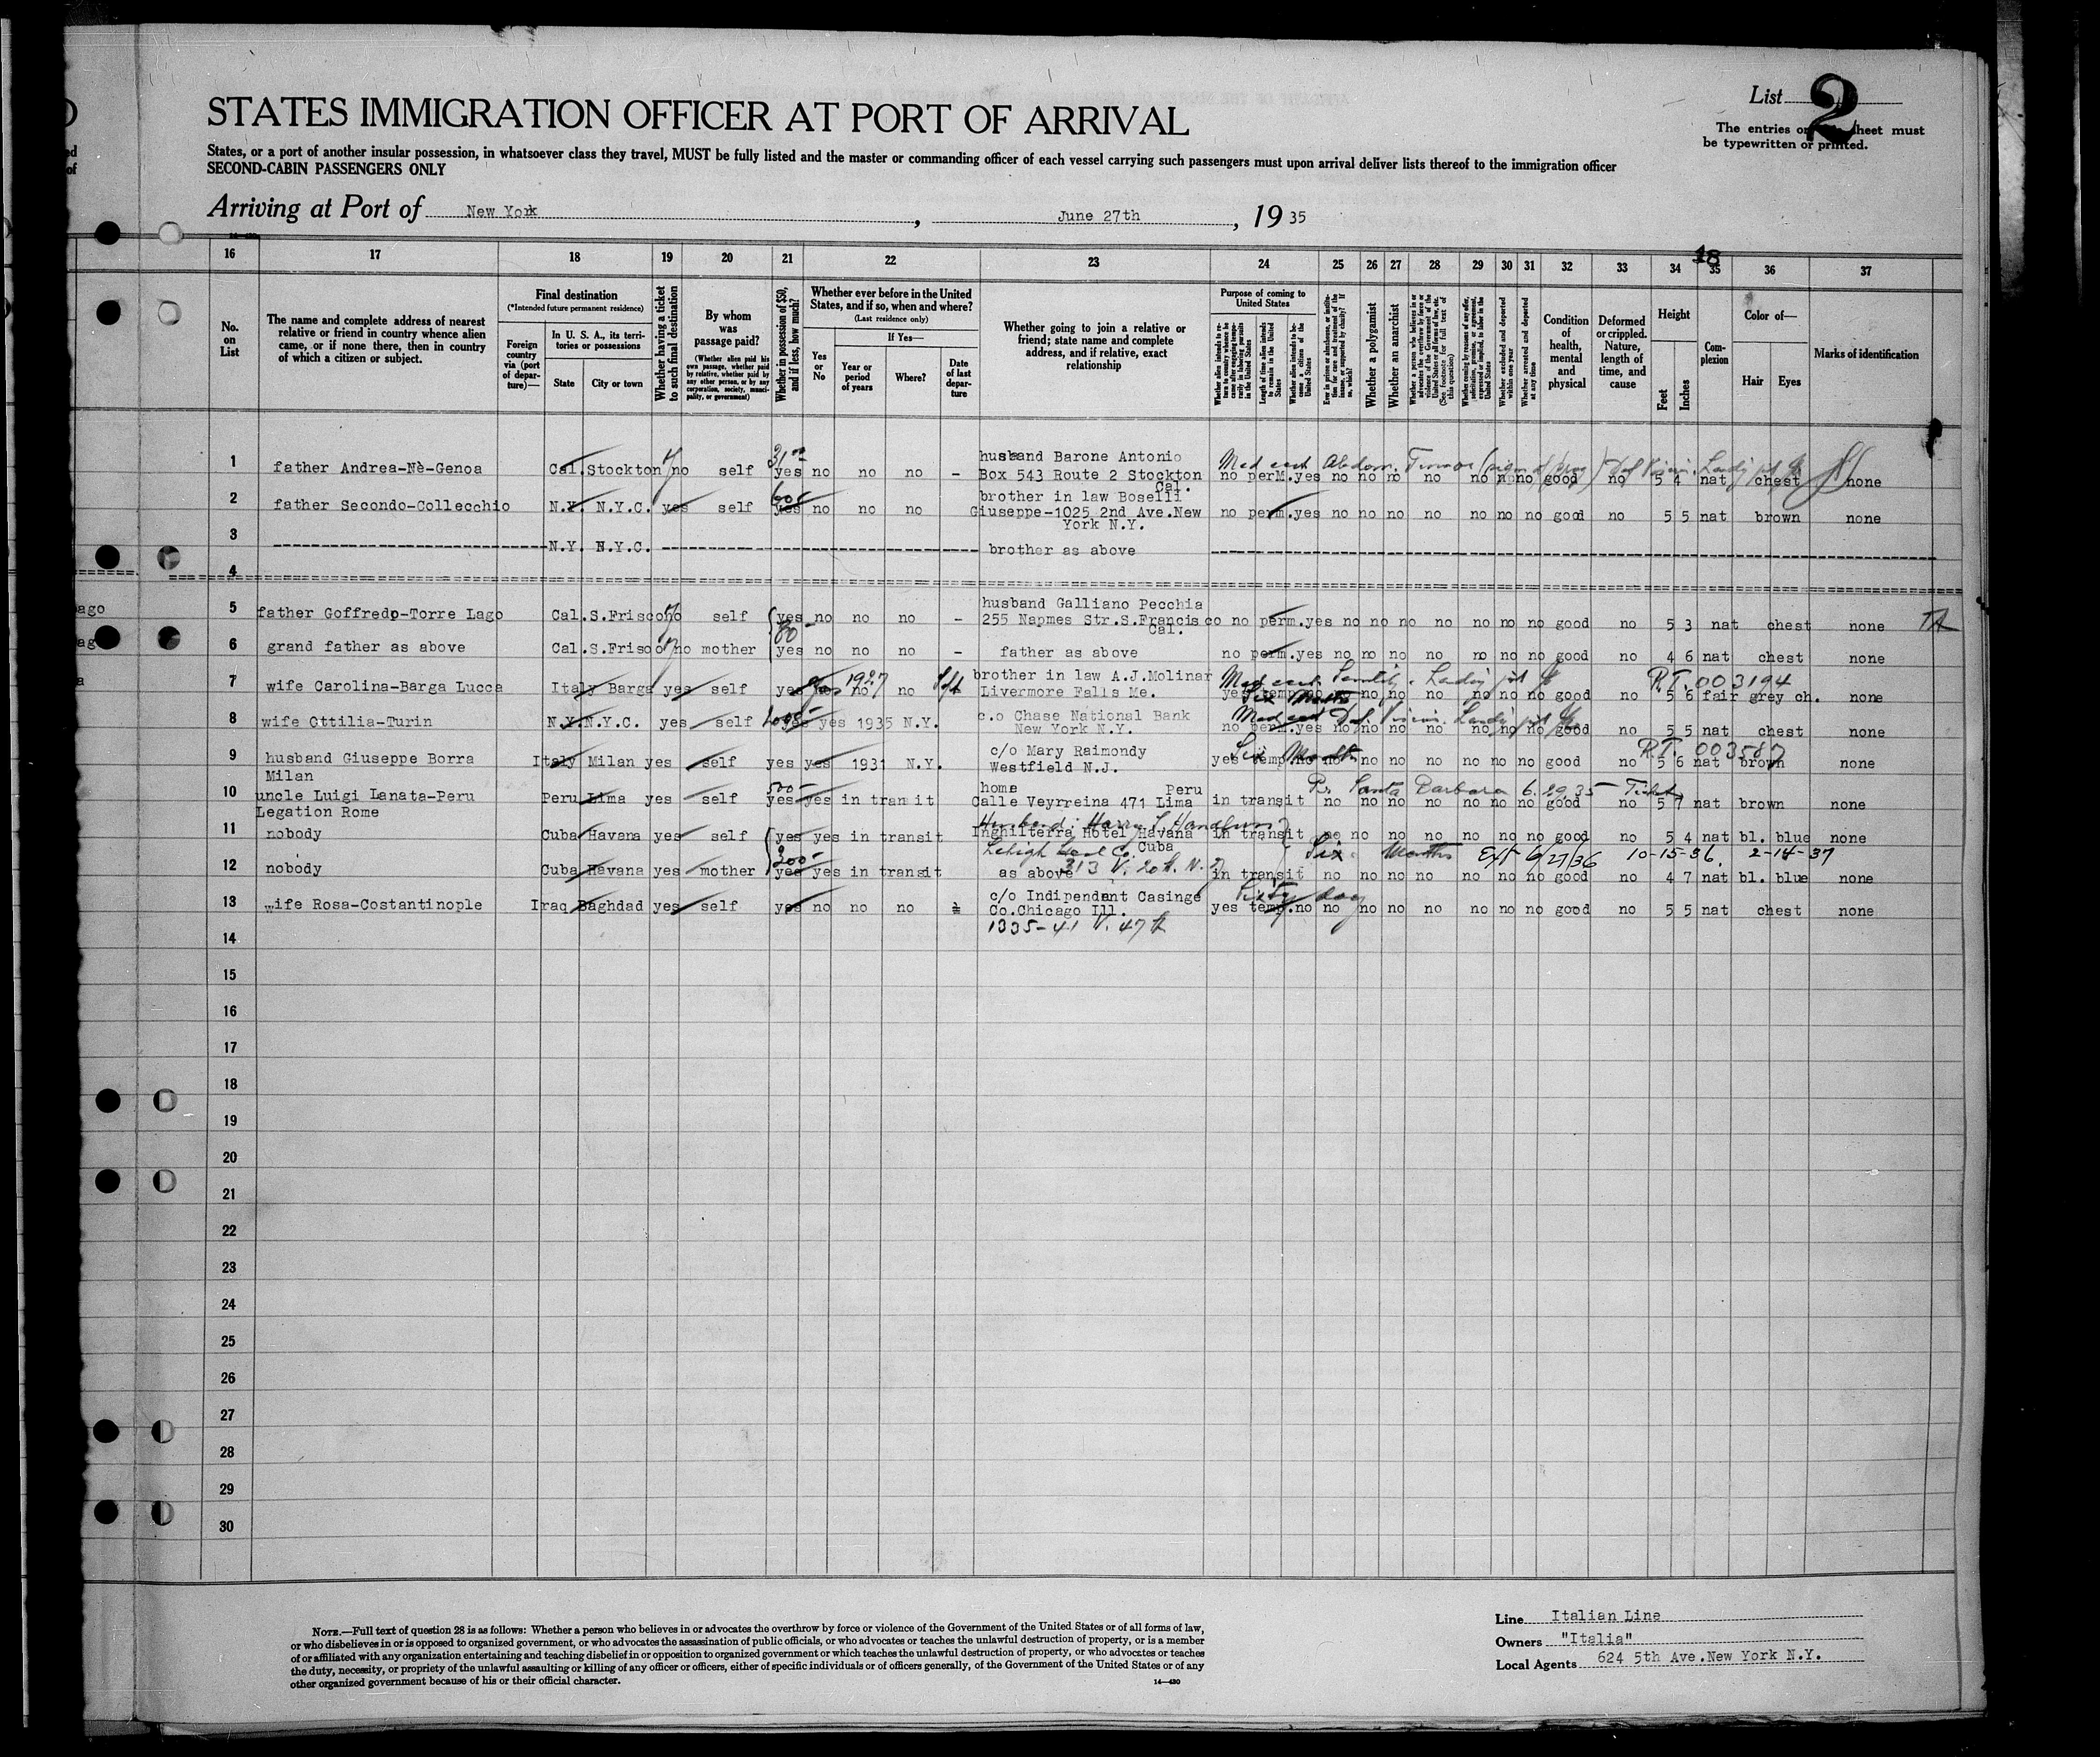 List 2
The entries on sheet must
be typewritten or printed.
STATES IMMIGRATION OFFICER AT PORT OF ARRIVAL
States, or a port of another insular possession, in whatsoever class they travel, MUST be fully listed and the master or commanding officer of each vessel carrying such passengers must upon arrival deliver lists thereof to the immigration officer
SECOND-CABIN PASSENGERS ONLY
Arriving at Port of New York, June 27th, 1935
16 17 18 19 20 21 22 23 24 25 26 27 28 29 30 31 32 33 34 35 36 37
18
No. on List
The name and complete address of nearest relative or friend in country whence alien came, or if none there, then in country of which a citizen or subject.
Final destination
(*Intended future permanent residence)
Foreign country via (port of departure)—
In U. S. A., its territories or possessions
State
City or town
Whether having a ticket to such final destination
By whom was passage paid?
(Whether alien paid his own passage, whether paid by relative, whether paid by any other person, or by any corporation, society, municipality, or government)
Whether in possession of $50, and if less, how much?
Whether ever before in the United States, and if so, when and where?
(Last residence only)
Yes or No
If Yes—
Year or period of years
Where?
Date of last departure
Whether going to join a relative or friend; state name and complete address, and if relative, exact relationship
Purpose of coming to United States
Length of time alien intends to remain in the United States
Whether alien intends to become a citizen of the United States
Whether a polygamist
Whether an anarchist
(See footnote for full text of this question)
Whether excluded and deported within one year
Whether arrested and deported at any time
Condition of health, mental and physical
Deformed or crippled. Nature, length of time, and cause
Height
Feet
Inches
Complexion
Color of—
Hair
Eyes
Marks of identification
1 father Andrea-Nè-Genoa Cal. Stockton no self yes no no no - husband Barone Antonio
Box 543 Route 2 Stockton Cal. no perM. yes no no no no no no no good no 5 4 nat chest none
2 father Secondo-Collecchio N.Y. N.Y.C. yes self yes no no no brother in law Boselli
Giuseppe-1025 2nd Ave.New York N.Y. no perm. yes no no no no no no no good no 5 5 nat brown none
3 N.Y. N.Y.C. brother as above
4
5 father Goffredo-Torre Lago Cal. S.Frisco no self yes no no no - husband Galliano Pecchia
255 Napmes Str.S.Francisco Cal. no perm. yes no no no no no no no good no 5 3 nat chest none
80
6 grand father as above Cal. S.Frisco no mother yes no no no - father as above no perm. yes no no no no no no no good no 4 6 nat chest none
7 wife Carolina-Barga Lucca Italy Barga yes self yes 1927 no no brother in law A.J.Molinar
Livermore Falls Me. yes temp. no no no no no no no no good no 5 6 fair grey ch. none
Six Months R.T. 003194
8 wife Ottilia-Turin N.Y. N.Y.C. yes self yes yes 1935 N.Y. c.o Chase National Bank
New York N.Y. no perm. yes no no no no no no no good no 5 5 nat chest none
9 husband Giuseppe Borra
Milan Italy Milan yes self yes yes 1931 N.Y. c/o Mary Raimondy
Westfield N.J. yes temp. no no no no no no no no good no 5 6 nat brown none
Six Months R.T. 003587
10 uncle Luigi Lanata-Peru
Legation Rome Peru Lima yes self 500 yes yes in transit home Peru
Calle Veyrreina 471 Lima in transit no no no no no no no good no 5 7 nat brown none
Santa Barbara 6.29.35
11 nobody Cuba Havana yes self yes yes in transit Husband: Harry
Inghilterra Hotel Havana Cuba in transit no no no no no no no good no 5 4 nat bl. blue none
300
Six Months Ext 6/27/36 10-15-36. 2-14-37
12 nobody Cuba Havana yes mother yes yes in transit as above in transit no no no no no no no good no 4 7 nat bl. blue none
13 wife Rosa-Costantinople Iraq Baghdad yes self yes no no no c/o Indipendent Casinge
Co.Chicago Ill. yes temp. no no no no no no no no good no 5 5 nat chest none
1335-41 W. 47th
Sixty day
14
15
16
17
18
19
20
21
22
23
24
25
26
27
28
29
30
NOTE.—Full text of question 28 is as follows: Whether a person who believes in or advocates the overthrow by force or violence of the Government of the United States or of all forms of law,
or who disbelieves in or is opposed to organized government, or who advocates the assassination of public officials, or who advocates or teaches the unlawful destruction of property, or is a member
of or affiliated with any organization entertaining and teaching disbelief in or opposition to organized government or which teaches the unlawful destruction of property, or who advocates or teaches
the duty, necessity, or propriety of the unlawful assaulting or killing of any officer or officers, either of specific individuals or of officers generally, of the Government of the United States or of any
other organized government because of his or their official character.
14—430
Line Italian Line
Owners "Italia"
Local Agents 624 5th Ave.New York N.Y.